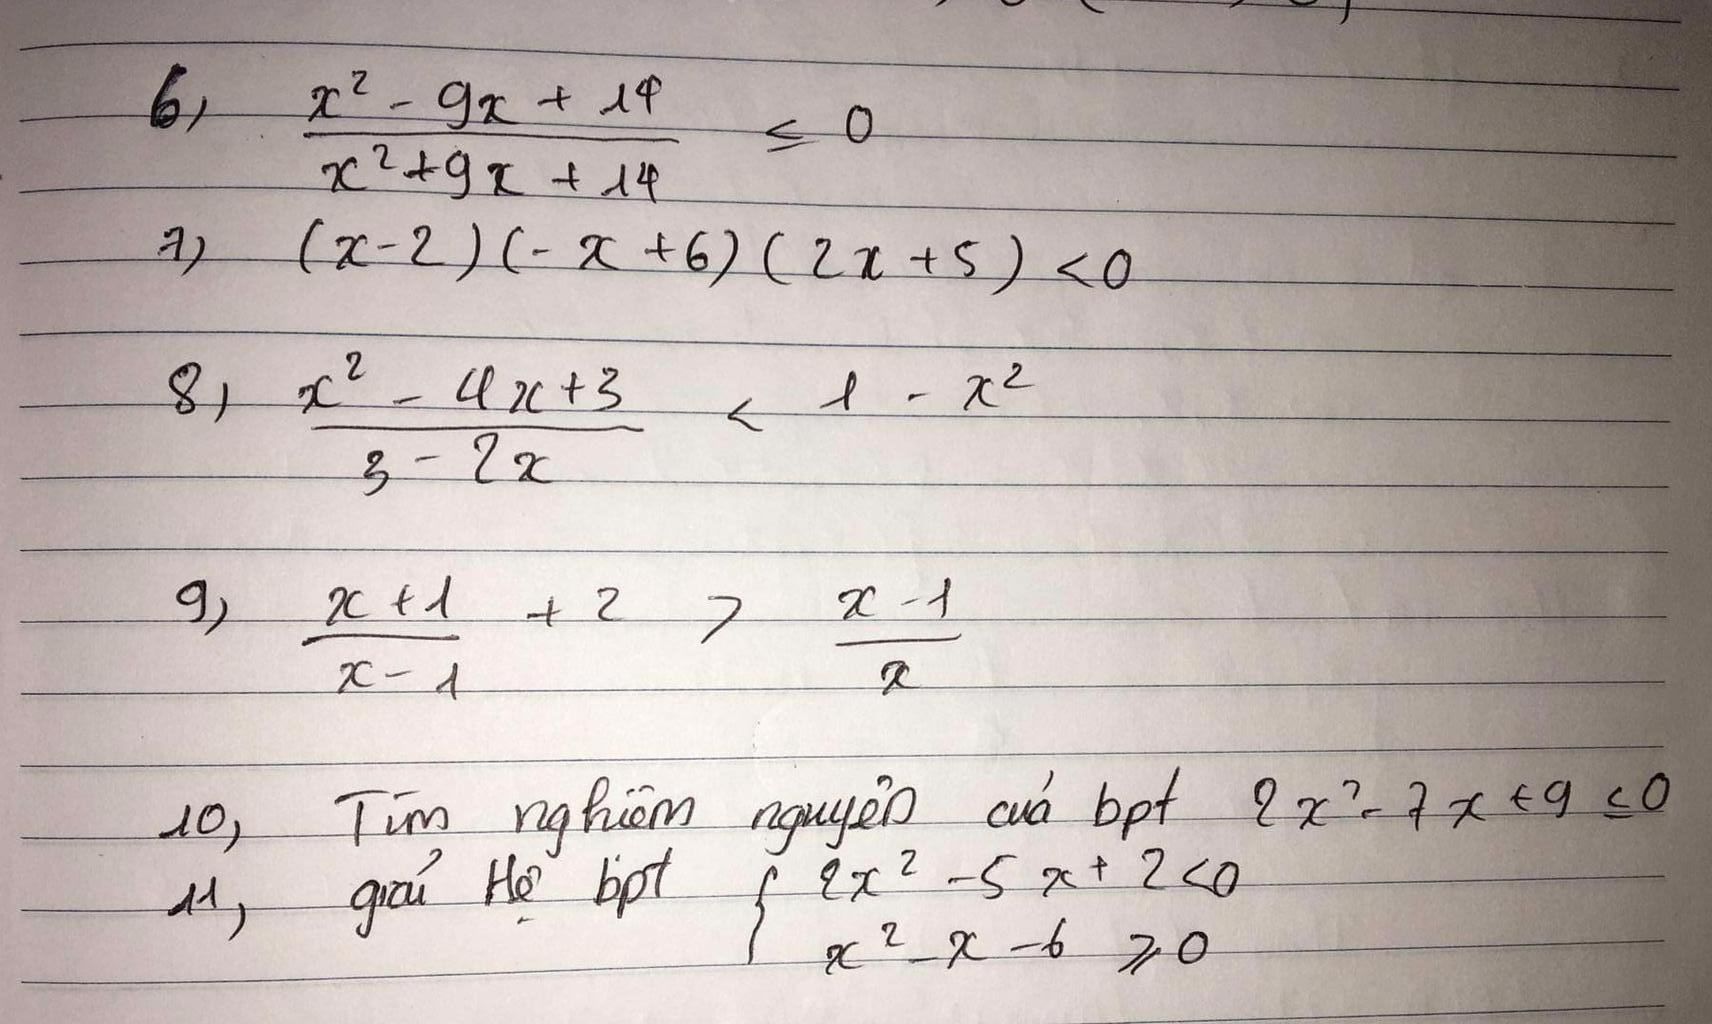 6, \frac{x² - 9x + 14}{x² + 9x + 14} ≤ 0
7) (x-2)(-x+6)(2x+5) < 0
8) \frac{x² - 4x + 3}{3 - 2x} < 1 - x²
9) \frac{x+1}{x-1} + 2 > \frac{x-1}{x}
10, Tìm nghiệm nguyên của bpt 2x² - 7x + 9 ≤ 0
11, giải Hệ bpt { 2x² - 5x + 2 < 0
x² - x - 6 ≥ 0